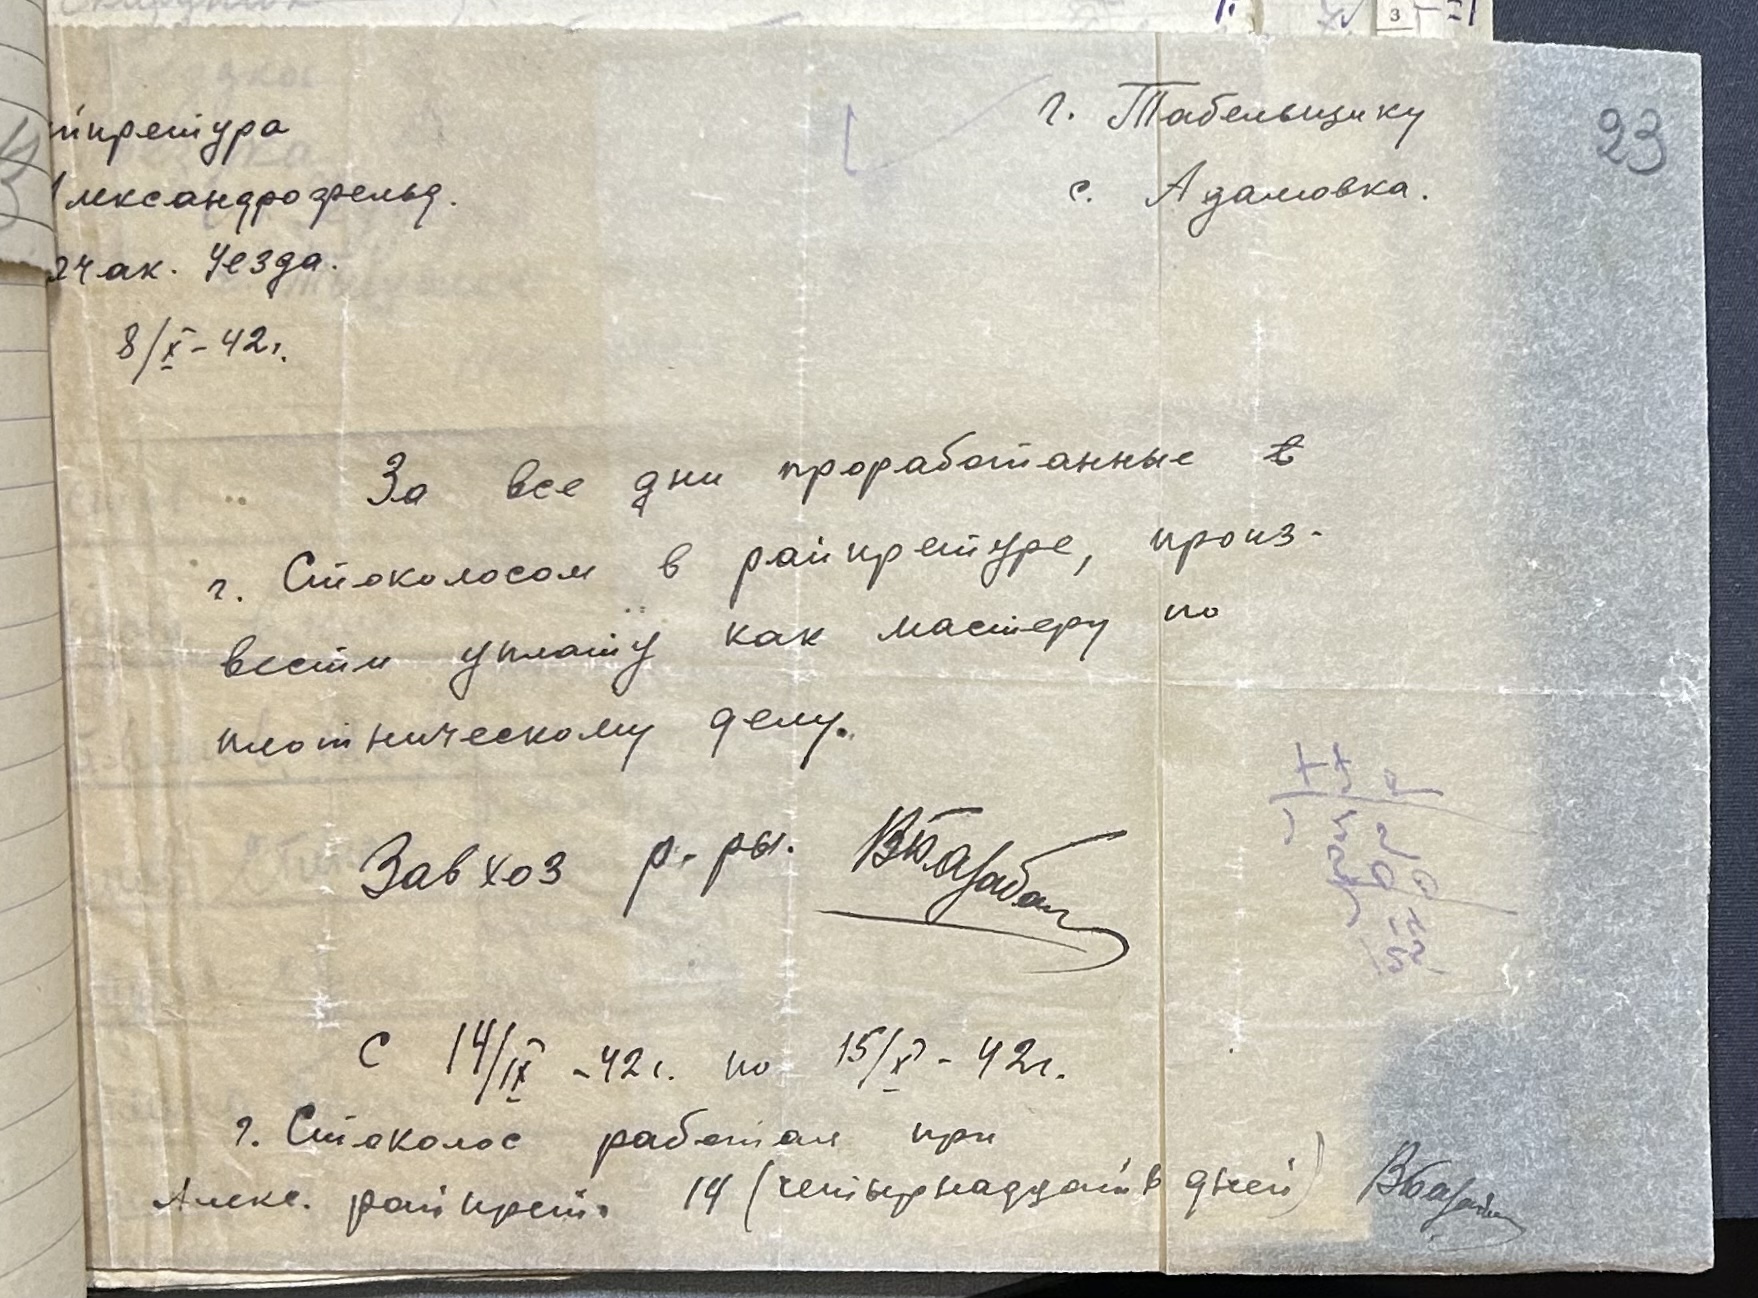 йпретура
Александрофельд.
Очак. Уезда.
8/X-42г.
г. Табельщику
с. Адамовка.
23
За все дни проработанные
г. Стоколосом в райпретуре, произ-
вести уплату как мастеру по
плотническому делу.
Завхоз р-ры. ВБарабан
С 14/IX-42г. по 15/X-42г.
г. Стоколос работал при
Алекс. райпрет. 14 (четырнадцать дней)
3